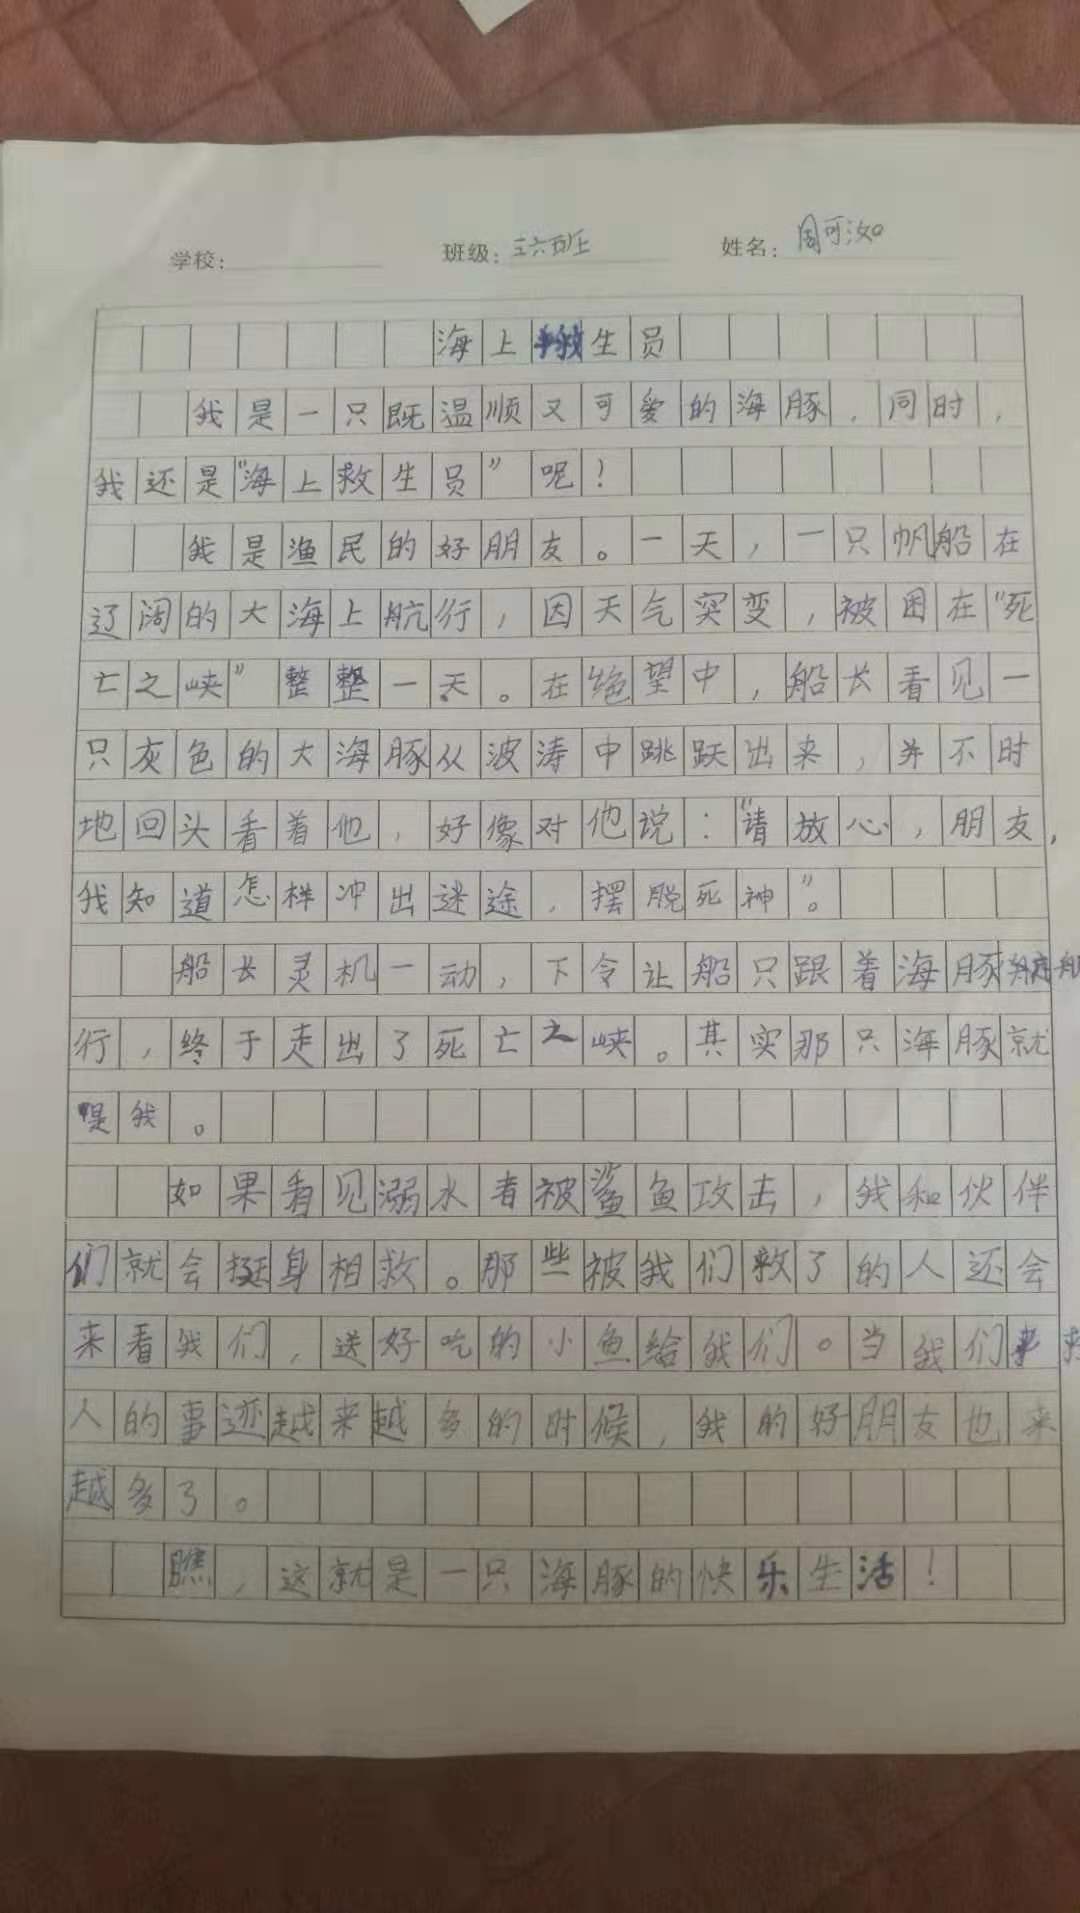 学校: 班级: 三六班 姓名: 周可汝
海上救生员
我是一只既温顺又可爱的海豚，同时，
我还是"海上救生员"呢！
我是渔民的好朋友。一天，一只帆船在
辽阔的大海上航行，因天气突变，被困在"死
亡之峡"整整一天。在绝望中，船长看见一
只灰色的大海豚从波涛中跳跃出来，并不时
地回头看着他，好像对他说："请放心，朋友，
我知道怎样冲出迷途，摆脱死神"。
船长灵机一动，下令让船只跟着海豚航
行，终于走出了死亡之峡。其实那只海豚就
是我。
如果看见溺水者被鲨鱼攻击，我和伙伴
们就会挺身相救。那些被我们救了的人还会
来看我们，送好吃的小鱼给我们。当我们
人的事迹越来越多的时候，我的好朋友也来
越多了。
瞧，这就是一只海豚的快乐生活！